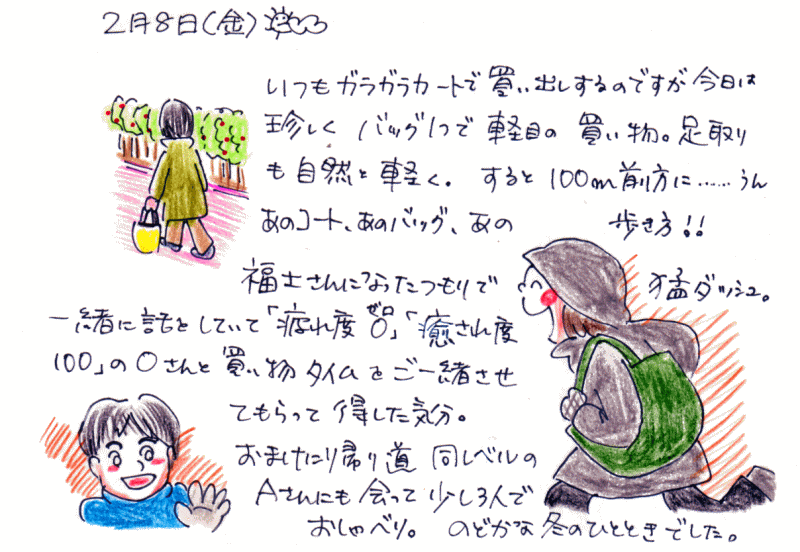 2月8日(金)
いつもガラガラカートで買い出しするのですが今日は
珍しくバッグ1つで軽目の買い物。足取り
も自然と軽く。すると100m前方に……うん
あのコート、あのバッグ、あの歩き方!!
福士さんになったつもりで猛ダッシュ。
一緒に話をしていて「疲れ度0ゼロ」「癒され度
100」のOさんと買い物タイムをご一緒させ
てもらって得した気分。
おまけに帰り道同レベルの
Aさんにも会って少し3人で
おしゃべり。のどかな冬のひとときでした。